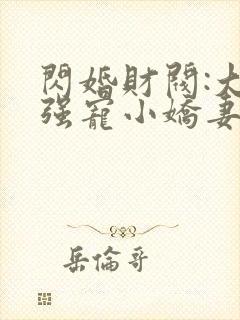 閃婚財閥:大
强寵小嬌妻
岳倫哥